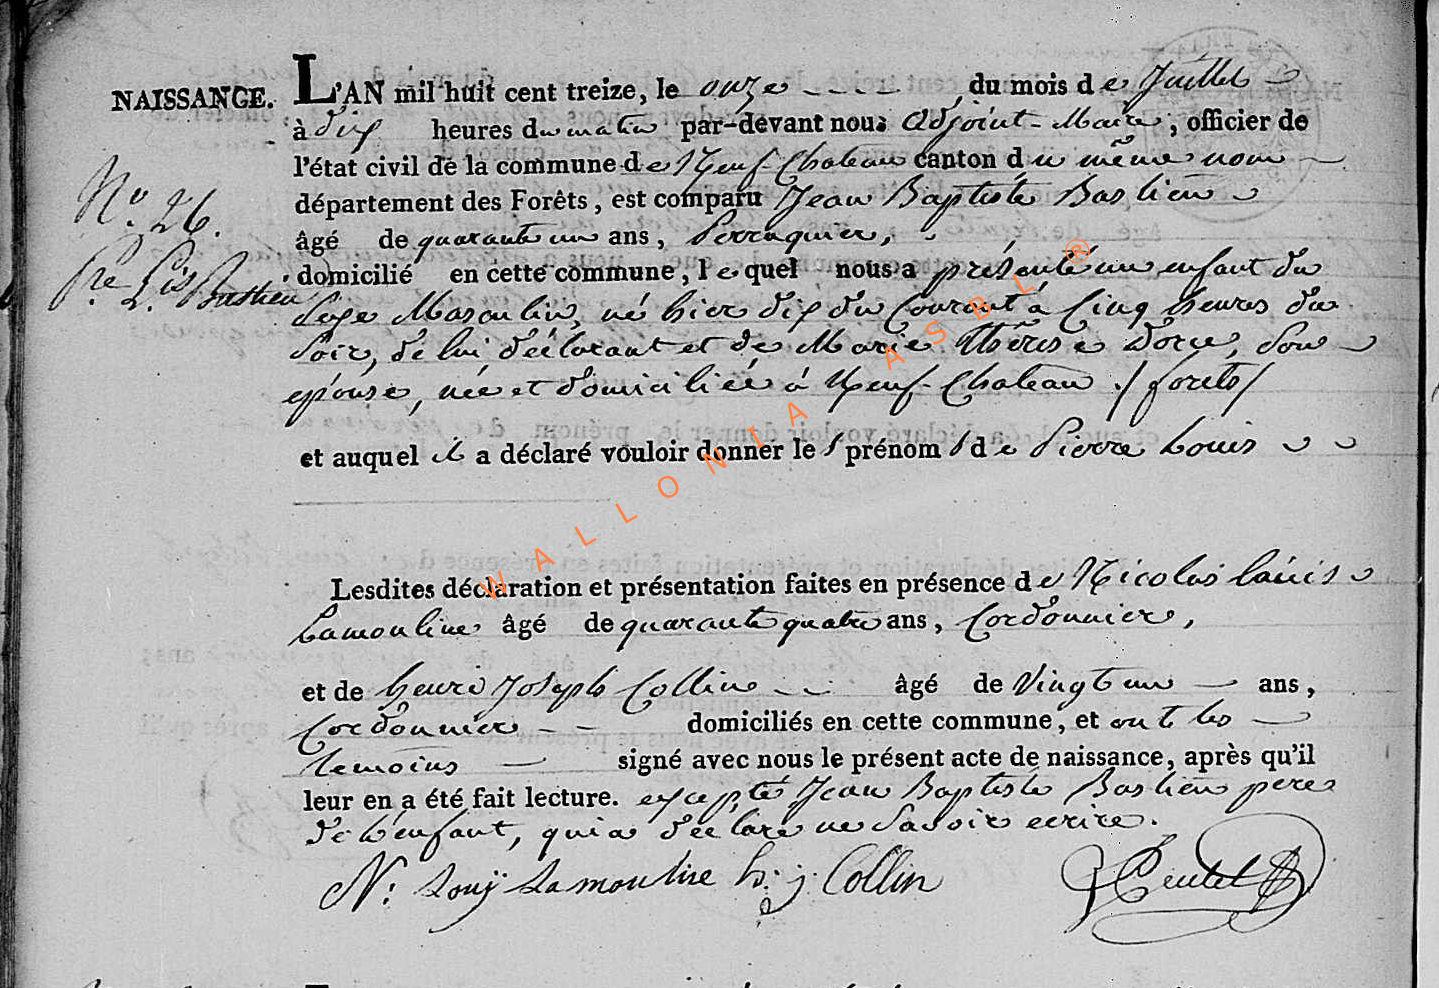 NAISSANCE.
L'AN mil huit cent treize, le onze du mois de Juillet
à dix heures du matin par-devant nous Adjoint-Maire, officier de
l'état civil de la commune de Neuf-Chateau canton du même nom
département des Forêts, est comparu Jean Baptiste Bastien
âgé de quarante un ans, Perruquier,
domicilié en cette commune, lequel nous a présenté un enfant du
Sexe Masculin, né hier dix du Courant à Cinq heures du
Soir, de lui déclarant et de Marie Thérese Dorce, Son
epouse, née et domiciliée à Neuf-Chateau /forets/
et auquel il a déclaré vouloir donner les prénoms de Pierre Louis
Lesdites déclaration et présentation faites en présence de Nicolas Louis
Lamouline âgé de quarante quatre ans, Cordonnier,
et de henri Joseph Collin âgé de Vingt un ans,
Cordonnier domiciliés en cette commune, et ont les
temoins signé avec nous le présent acte de naissance, après qu'il
leur en a été fait lecture. excepté Jean Baptiste Bastien pere
de l'enfant, qui a déclaré ne Savoir ecrire.
N: Louÿ Lamouline h: j: Collin
No. 26.
Pre Lis Bastien
WALLONIA ASBL ®